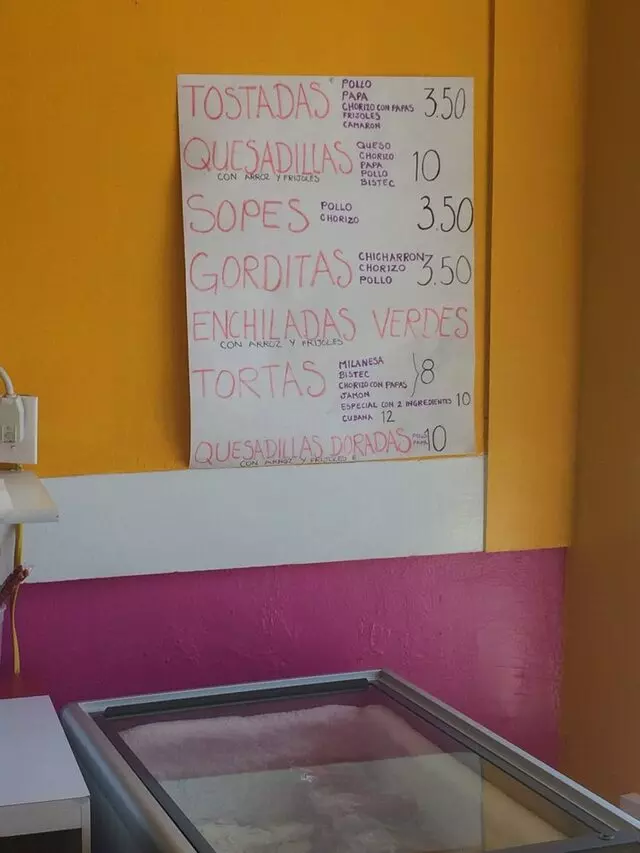 TOSTADAS POLLO
PAPA
CHORIZO CON PAPAS 3.50
FRIJOLES
CAMARON
QUESADILLAS QUESO
CHORIZO
PAPA 10
POLLO
CON ARROZ Y FRIJOLES BISTEC
SOPES POLLO 3.50
CHORIZO
GORDITAS CHICHARRON
CHORIZO 3.50
POLLO
ENCHILADAS VERDES
CON ARROZ Y FRIJOLES
TORTAS MILANESA
BISTEC 8
CHORIZO CON PAPAS
JAMON
ESPECIAL CON 2 INGREDIENTES 10
CUBANA 12
QUESADILLAS DORADAS POLLO 10
PAPA
CON ARROZ Y FRIJOLES